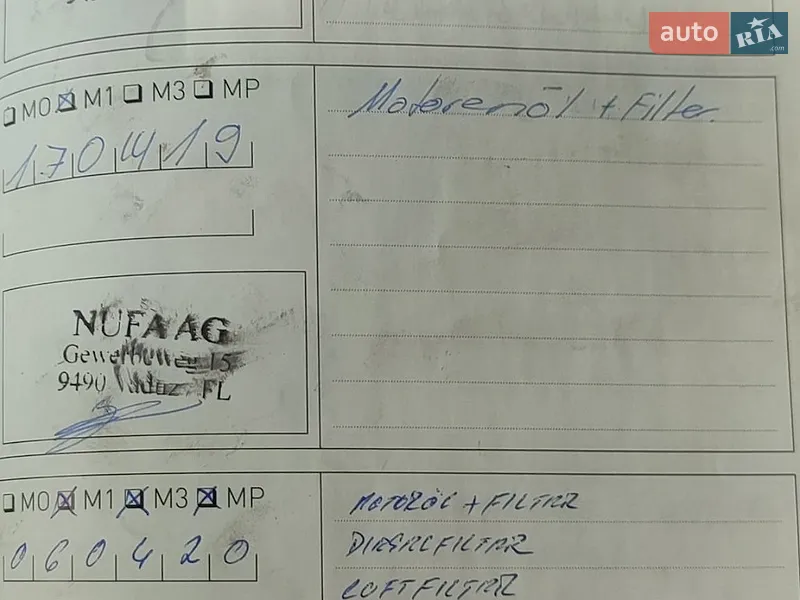 auto RIA .com
M0 M1 M3 MP
170419
Motorenöl + Filter.
NUFA AG
Gewerbeweg 15
9490 Vaduz FL
M0 M1 M3 MP
060420
MOTORÖL + FILTER
DIESELFILTER
LUFTFILTER